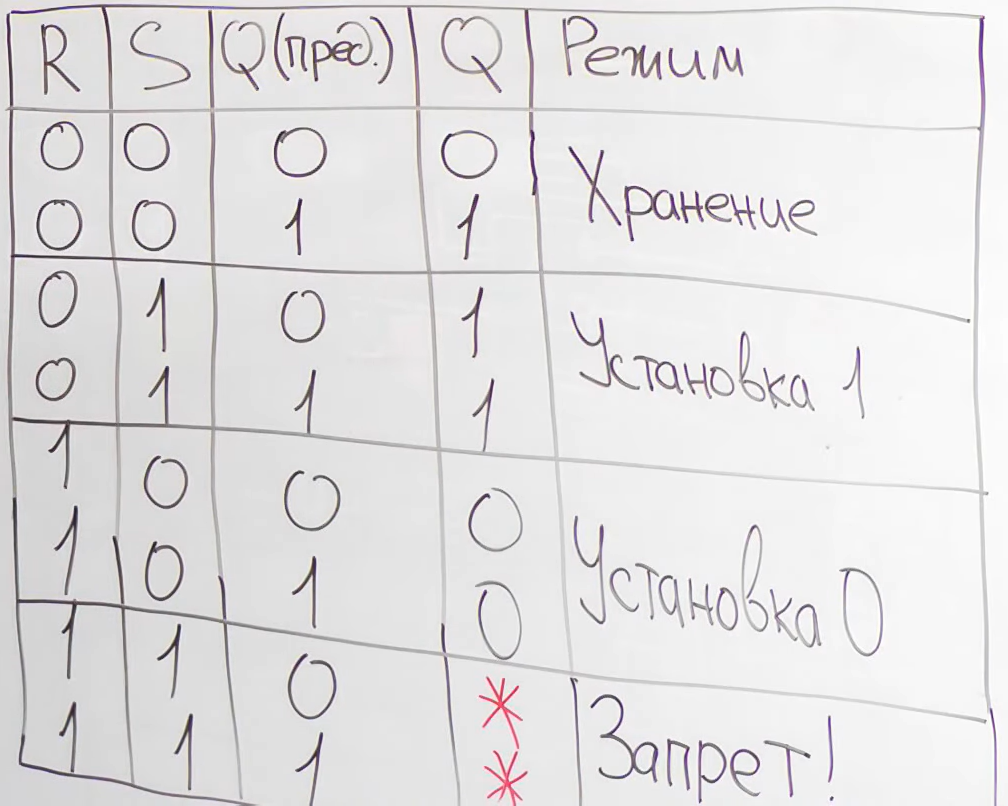 R S Q(пред.) Q Режим
0 0 0 0 Хранение
0 0 1 1
0 1 0 1 Установка 1
0 1 1 1
1 0 0 0 Установка 0
1 0 1 0
1 1 0 * Запрет!
1 1 1 *